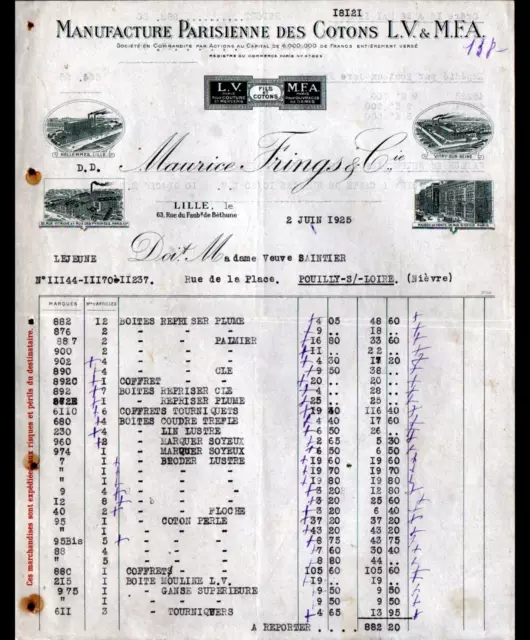 18121
MANUFACTURE PARISIENNE DES COTONS L.V. & M.F.A.
SOCIÉTÉ EN COMMANDITE PAR ACTIONS AU CAPITAL DE 4.000.000 DE FRANCS ENTIÈREMENT VERSÉ
138-
REGISTRE DU COMMERCE PARIS
L.V. FILS & COTONS M.F.A.
HELLEMMES, LILLE
VITRY-SUR-SEINE
D.D. Maurice Frings & Cie
LILLE, le
63, Rue du Faubg de Béthune
2 JUIN 1925
LEJEUNE Doit, Madame Veuve SAINTIER
N°III44-III70-II237. Rue de la Place. POUILLY-S/-LOIRE. (Nièvre)
MARQUES
882 I2 BOITES REPRISER PLUME 4 05 48 60
876 2 - - - 9 .. 18 ..
887 2 - - PALMIER 16 80 33 60
900 2 - - - 11 .. 22 ..
902 4 - - - 4 30 17 20
890 4 - - CLE 9 50 38 ..
892C I COFFRET - - 20 .. 20 ..
892 7 BOITES REPRISER CLE 4 .. 28 ..
872E I - REPRISER PLUME 25 .. 25 ..
6IIO 6 COFFRETS TOURNIQUETS 19 40 116 40
680 4 BOITES COUDRE TREFLE 4 40 17 60
230 4 - LIN LUSTRE 6 50 26 ..
960 2 - MARQUER SOYEUX 2 65 5 30
974 I - MARQUER SOYEUX 6 50 6 50
7 I - BRODER LUSTRE 19 60 19 60
" I - - - 19 70 19 70
" I - - - 19 80 19 80
9 4 - - - 3 20 12 80
12 8 - - - 3 20 25 60
40 2 - - FLOCHE 3 20 6 40
95 I - COTON PERLE 37 20 37 20
" I - - - 43 20 43 20
95Bis 5 - - - 8 75 43 75
88 4 - - - 7 60 30 40
" 5 - - - 8 80 44 ..
88C I COFFRET - - 105 60 105 60
215 I BOITE MOULINE L.V. 19 .. 19 ..
975 I - GANSE SUPERIEURE 9 50 9 50
" I - - - 9 50 9 50
6II 3 - TOURNIQUERS 4 65 13 95
A REPORTER .. 882 20
Ces marchandises sont expédiées aux risques et périls du destinataire.